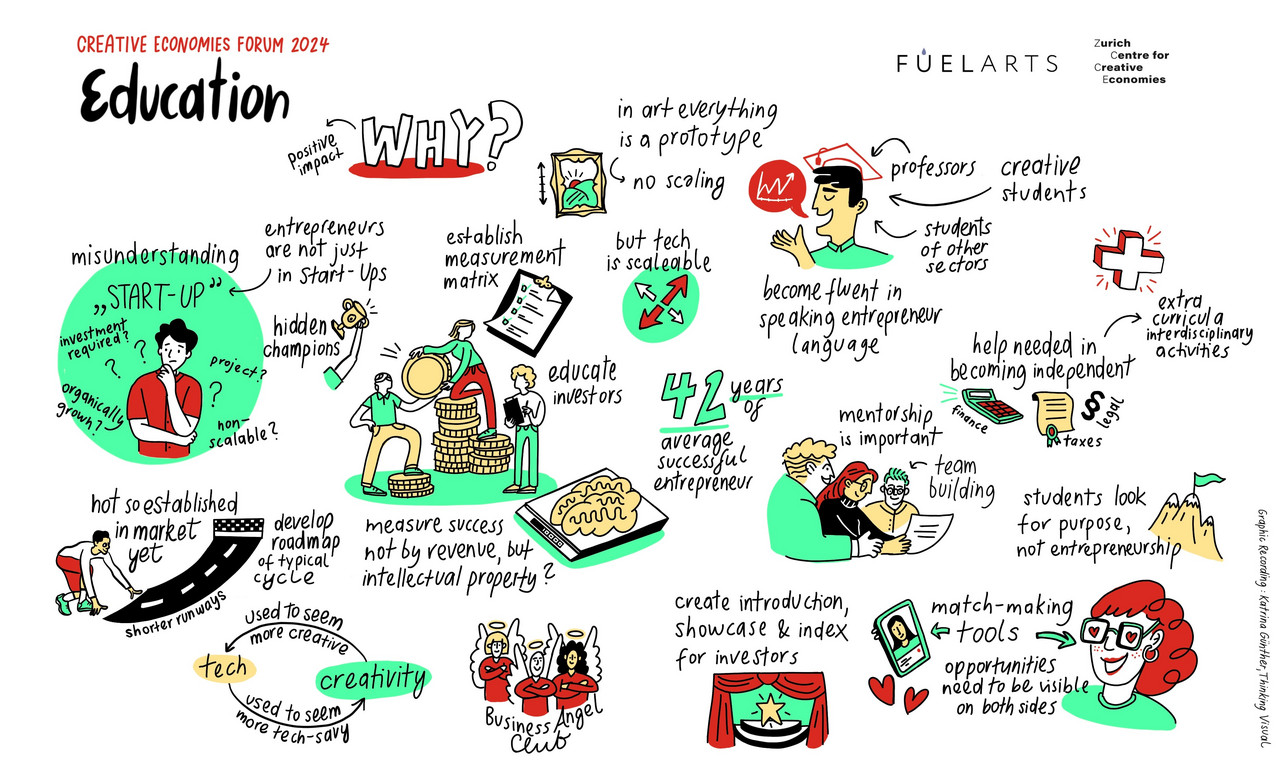 CREATIVE ECONOMIES FORUM 2024
Education
FUELARTS
Zurich
Centre for
Creative
Economies
positive
impact
WHY?
in art everything
is a prototype
no scaling
professors
creative
students
students
of other
sectors
become fluent in
speaking entrepreneur
language
misunderstanding
„START-UP”
investment
required?
?
?
project?
?
organically
grown?
non-
scalable?
entrepreneurs
are not just
in Start-Ups
hidden
champions
establish
measurement
matrix
but tech
is scaleable
educate
investors
42 years
of
average
successful
entrepreneur
extra
curricula
interdisciplinary
activities
help needed in
becoming independent
finance
taxes
§
legal
mentorship
is important
team
building
students look
for purpose,
not entrepreneurship
not so established
in market
yet
develop
roadmap
of typical
cycle
shorter runways
measure success
not by revenue, but
intellectual property?
used to seem
more creative
tech
creativity
used to seem
more tech-savy
Business Angel
Club
create introduction,
showcase & index
for investors
match-making
tools
opportunities
need to be visible
on both sides
Graphic Recording: Katrina Günther, Thinking Visual